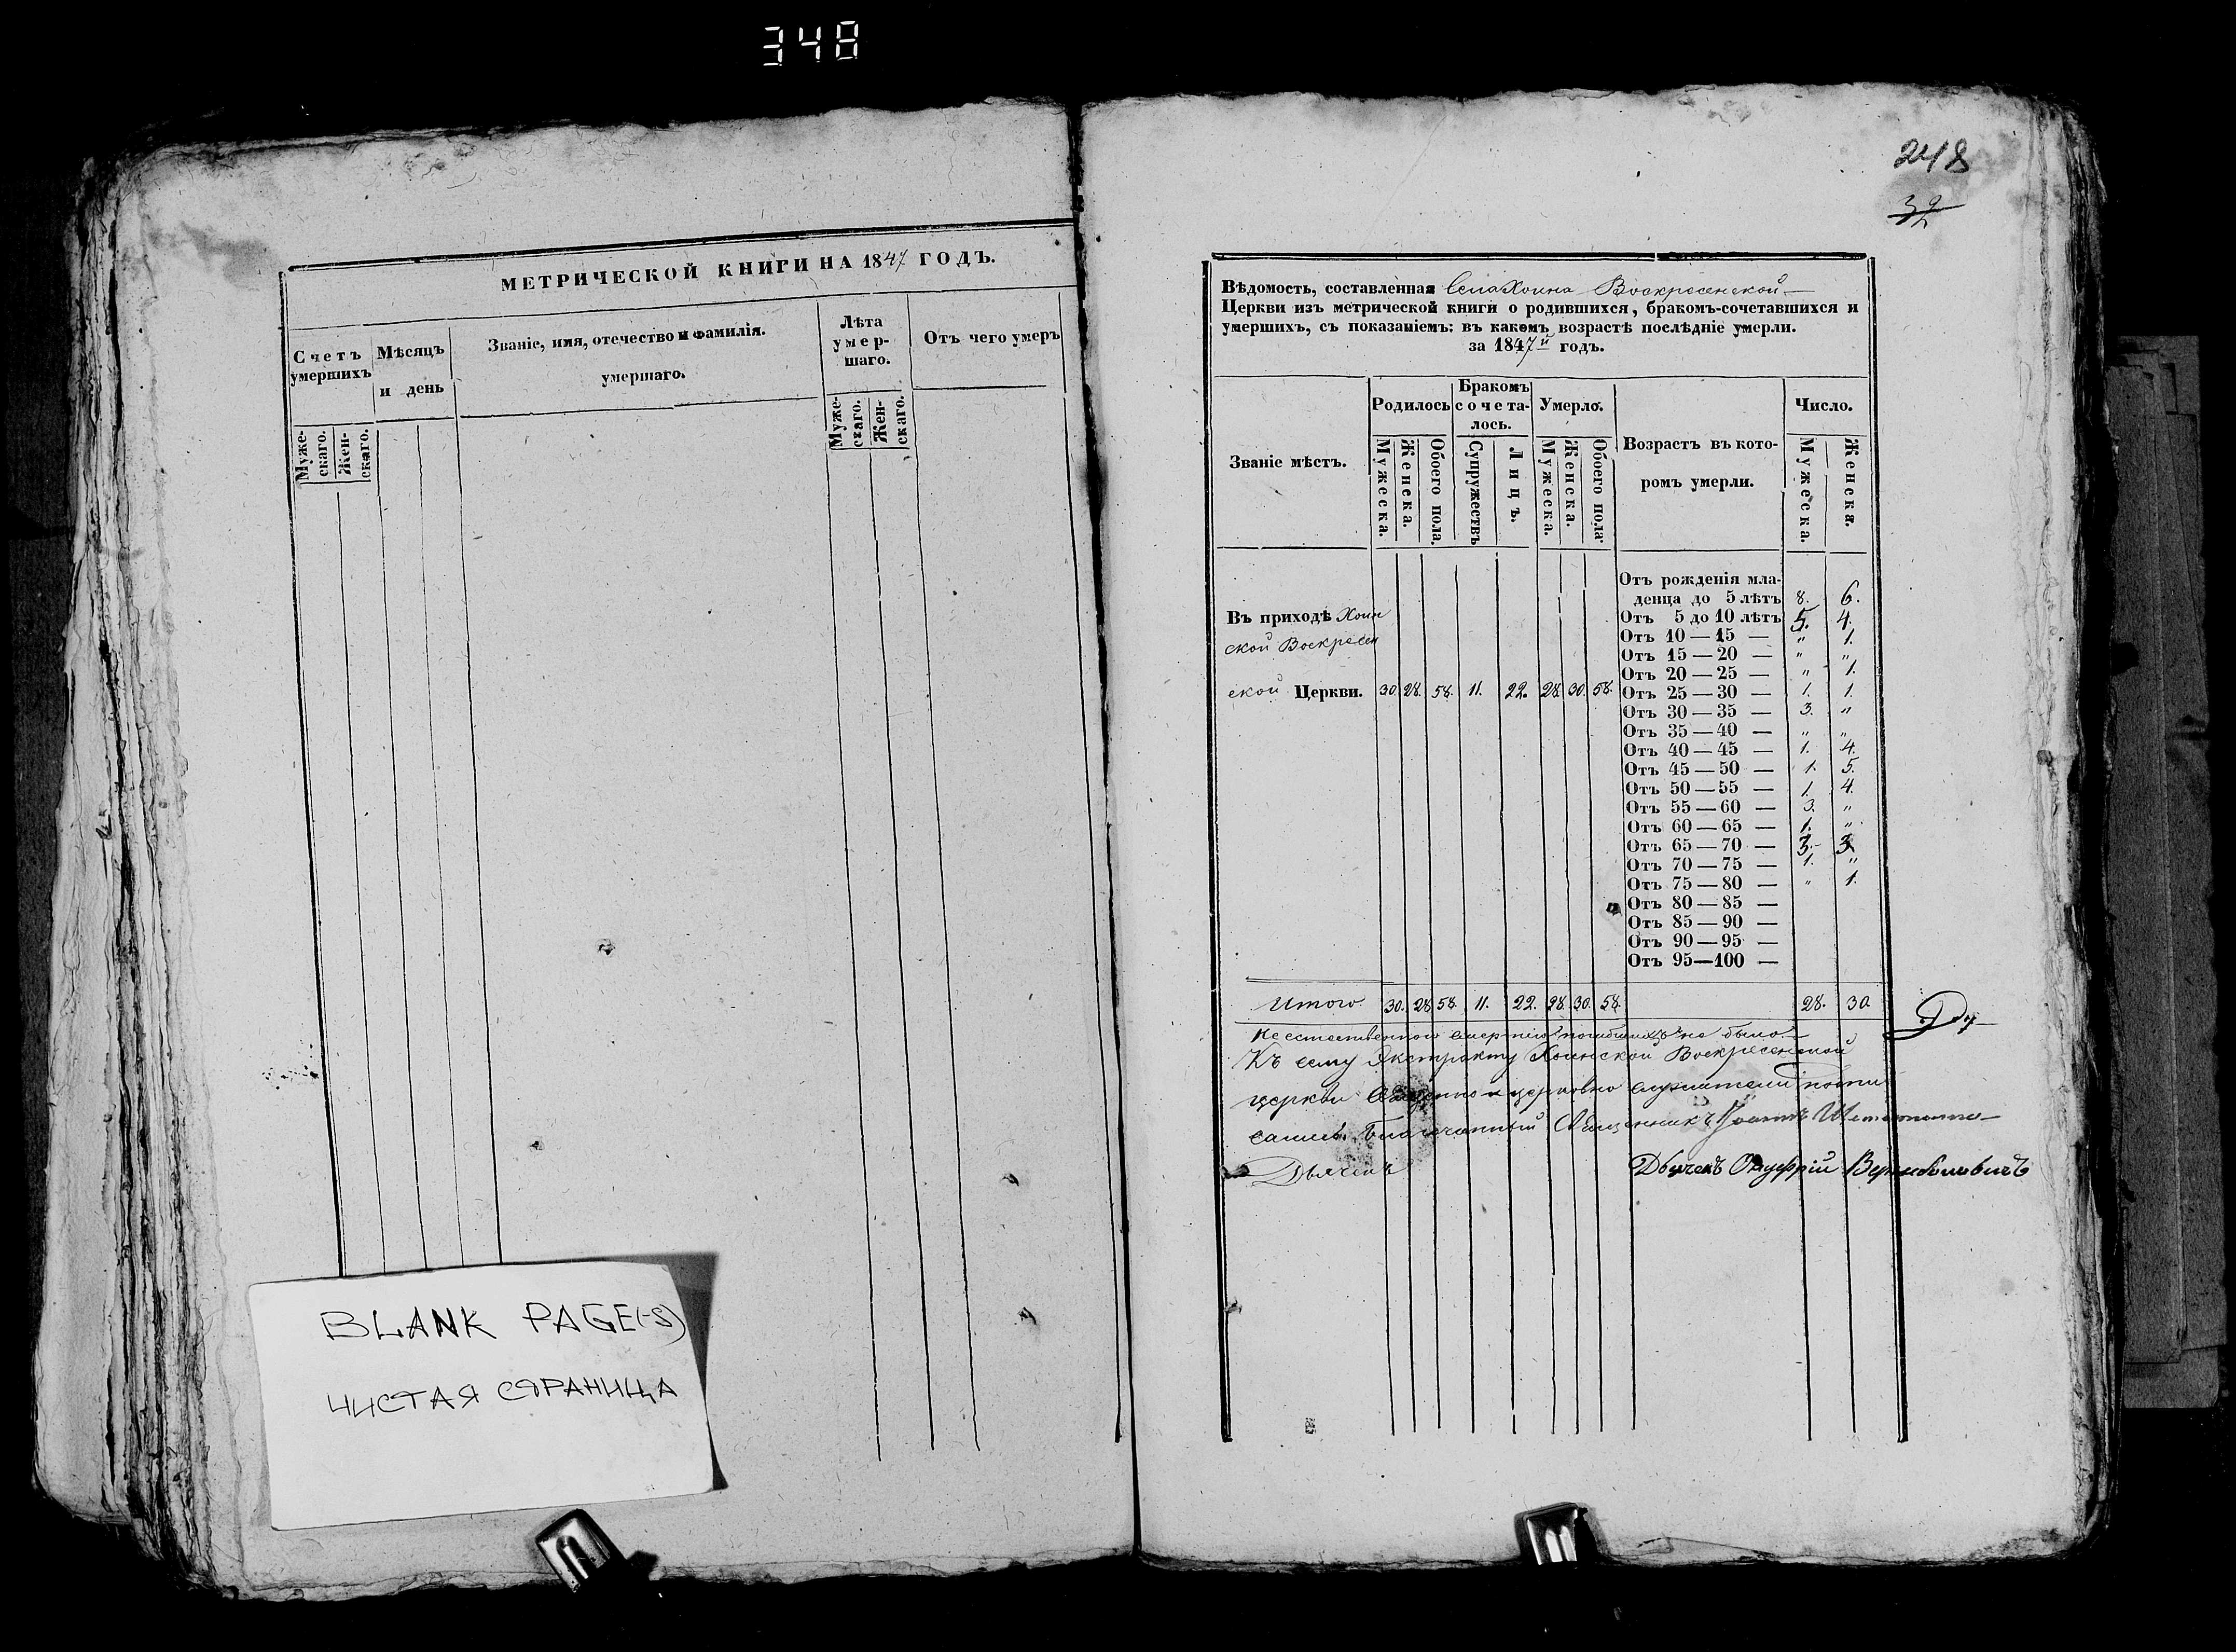 348
МЕТРИЧЕСКОЙ КНИГИ НА 1847 ГОДЪ.
Счетъ умершихъ
Мѣсяцъ и день
Званіе, имя, отечество и фамилія. умершаго.
Лѣта умер-шаго.
Отъ чего умеръ
Муже-скаго.
Жен-скаго.
Муже-скаго.
Жен-скаго.
BLANK PAGE(-S)
ЧИСТАЯ СТРАНИЦА
248
32
Вѣдомость, составленная Села Хоина Воскресенской
Церкви изъ метрической книги о родившихся, бракомъ-сочетавшихся и
умершихъ, съ показаніемъ: въ какомъ возрастѣ послѣдніе умерли.
за 1847й годъ.
Званіе мѣстъ.
Родилось
Бракомъ сочета-лось.
Умерло.
Возрастъ въ кото-ромъ умерли.
Число.
Мужеска. Женска. Обоего пола. Супружествъ Лицъ. Мужеска. Женска. Обоего пола Мужеска. Женска.
Отъ рожденія мла-
денца до 5 лѣтъ 8. 6.
Въ приходѣ Хоин Отъ 5 до 10 лѣтъ 5. 4.
Отъ 10—15 — " 1.
ской Воскресен Отъ 15—20 — " "
Отъ 20—25 — " 1.
ской Церкви. 30. 28. 58. 11. 22. 28. 30. 58. Отъ 25—30 — 1. 1.
Отъ 30—35 — 3. "
Отъ 35—40 — " "
Отъ 40—45 — 1. 4.
Отъ 45—50 — 1. 5.
Отъ 50—55 — 1. 4.
Отъ 55—60 — 3. "
Отъ 60—65 — 1. "
Отъ 65—70 — 3. 3.
Отъ 70—75 — 1. "
Отъ 75—80 — " 1.
Отъ 80—85 —
Отъ 85—90 —
Отъ 90—95 —
Отъ 95—100 —
Итого. 30. 28. 58. 11. 22. 28. 30. 58. 28. 30.
не было.
Къ сему Экстракту Хоинской Воскресенской
церкви Священно и церковно служители подпи
сались. Благочинный Священникъ Іоаннъ
Дьячекъ
Дьячекъ Онуфрій